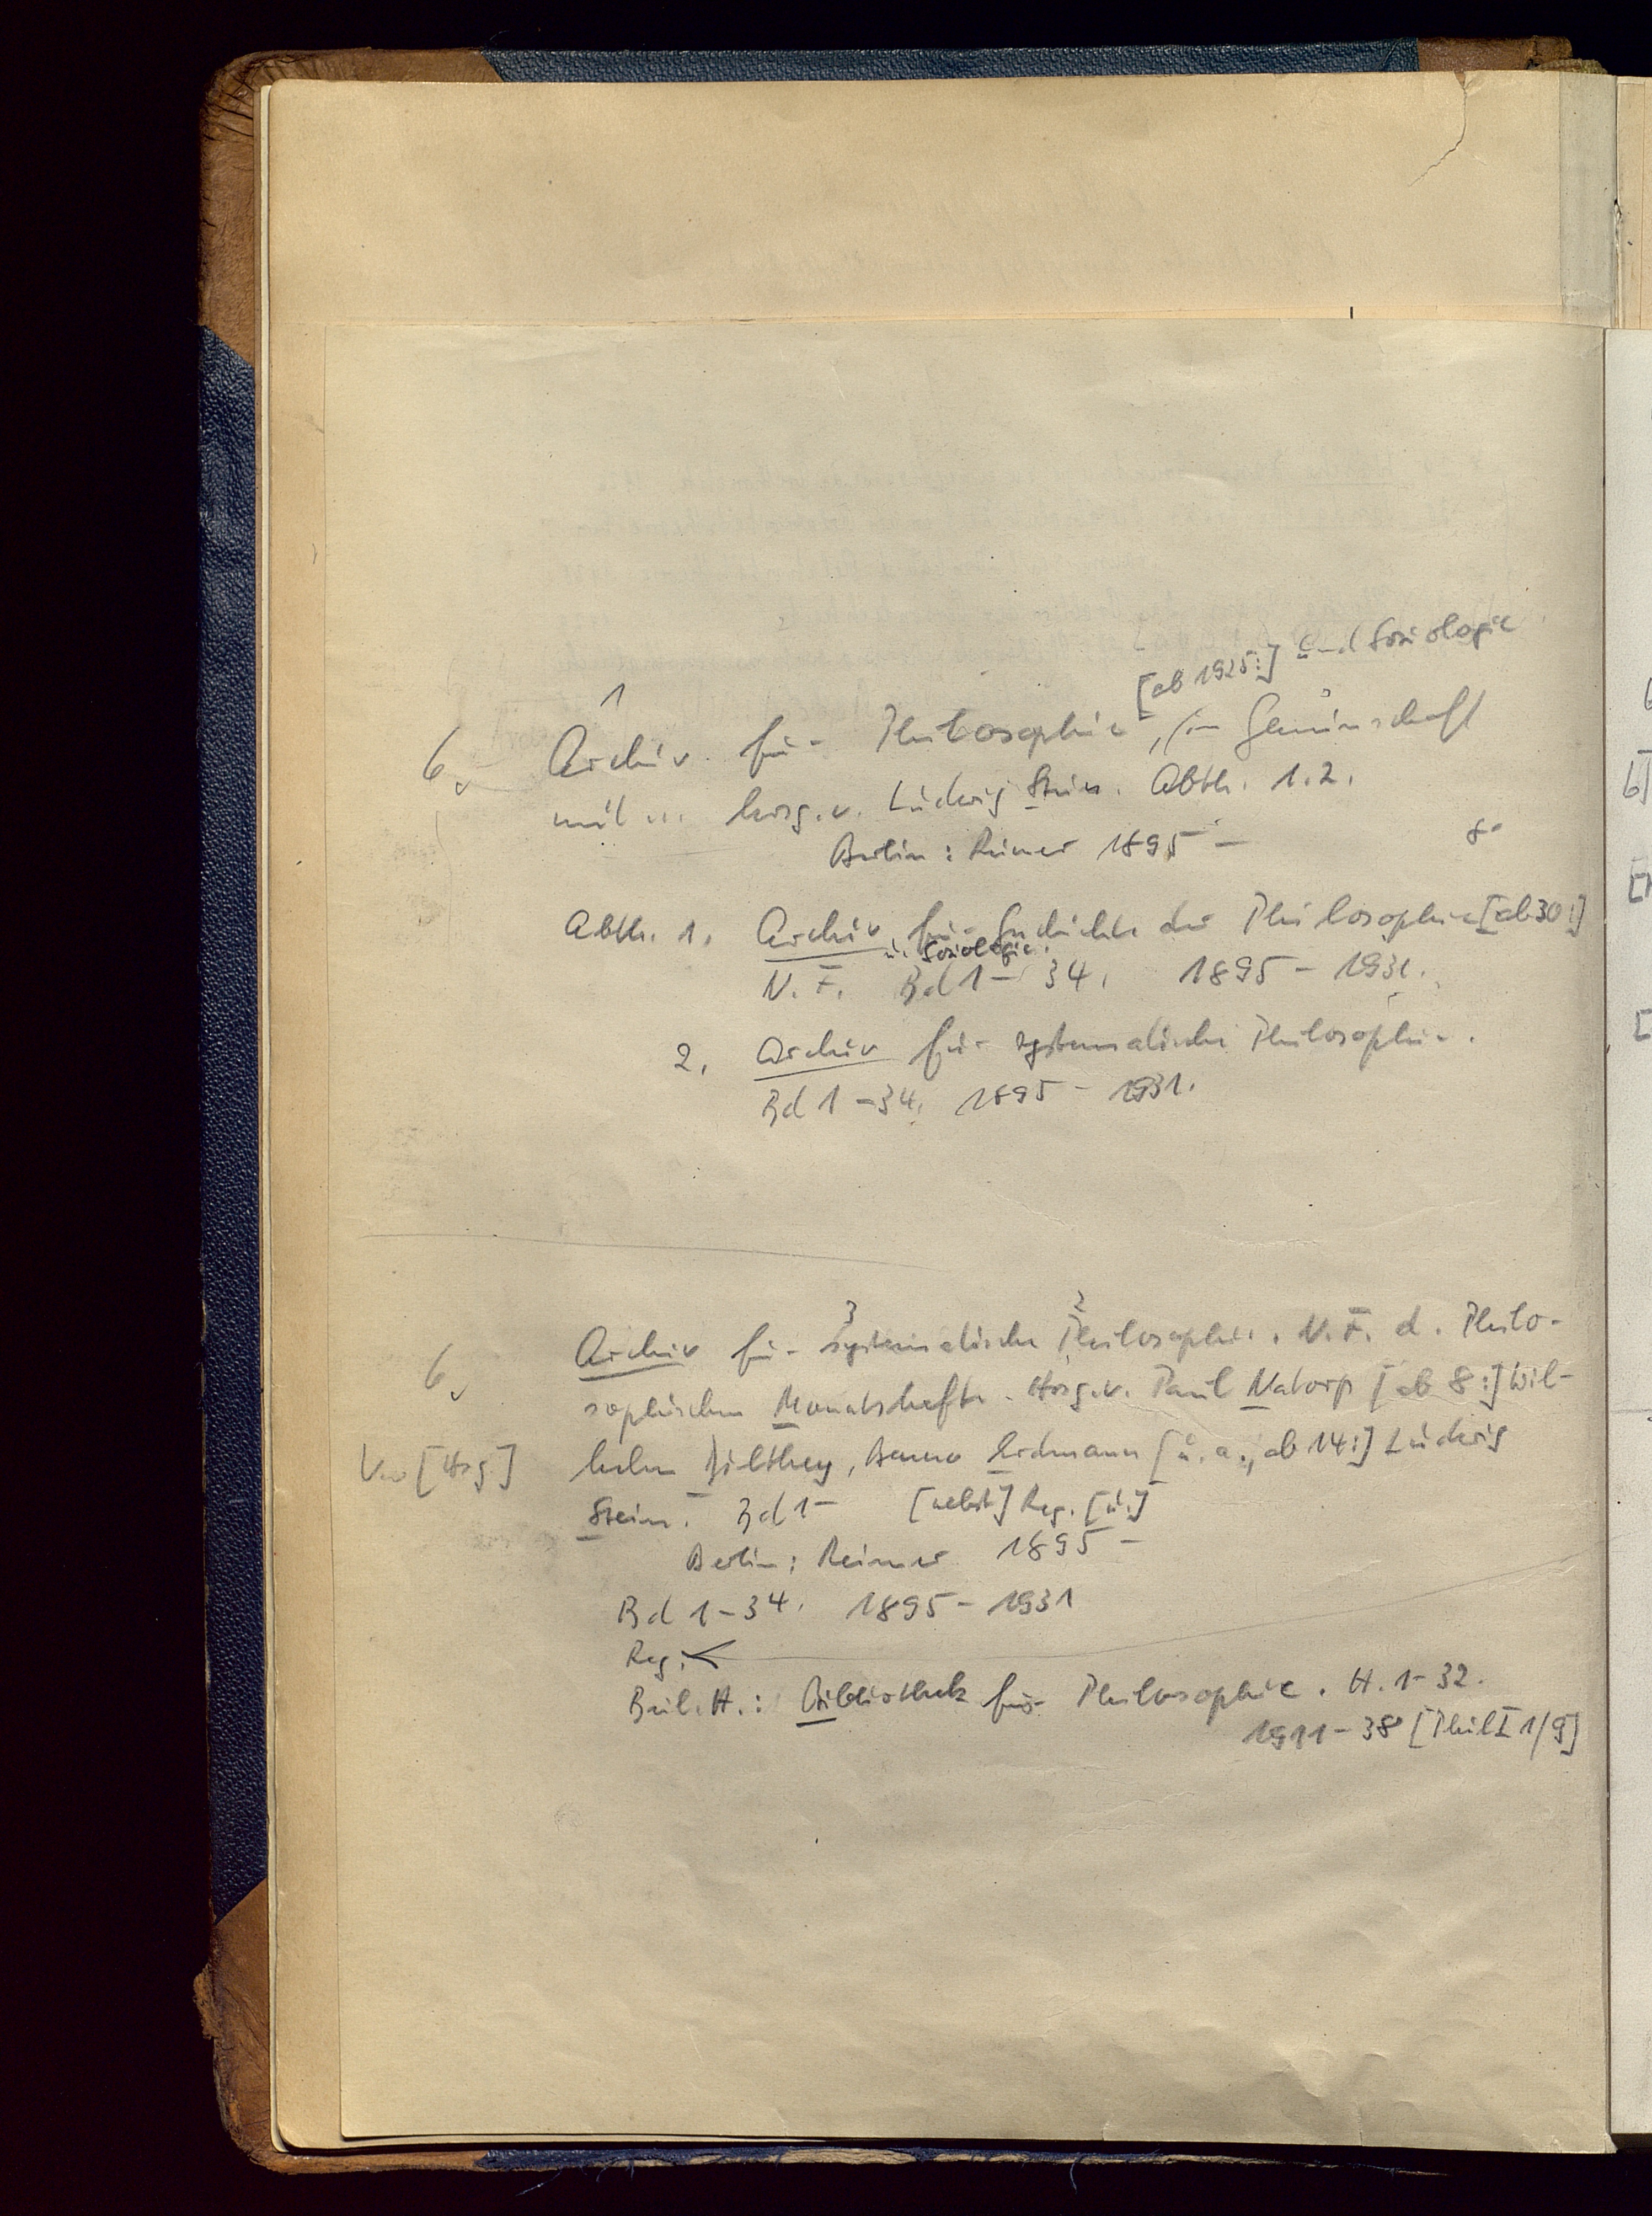 [ab 1925:] und Soziologie
1
6, Archiv für Philosophie, in Gemeinschaft
mit ... hrsg. v. Ludwig Stein. Abth. 1.2.
Berlin: Reimer 1895 – 8°
Abth. 1. Archiv für Geschichte der Philosophie [ab 30:]
u. Soziologie.
N. F. Bd 1 – 34. 1895 – 1931.
2. Archiv für systematische Philosophie.
Bd 1 – 34. 1895 – 1931.
3 2
6, Archiv für systematische Philosophie. N. F. d. Philo-
sophischen Monatshefte. Hrsg. v. Paul Natorp [ab 8:] Wil-
Vw [Hrsg.] helm Dilthey, Benno Erdmann [u. a., ab 14:] Ludwig
Stein. Bd 1 – [nebst] Reg. [u.]
Berlin: Reimer 1895 –
Bd 1 – 34. 1895 – 1931
Reg.
Beil. H.: Bibliothek für Philosophie. H. 1 – 32.
1911 – 38 [Phil I 1/9]